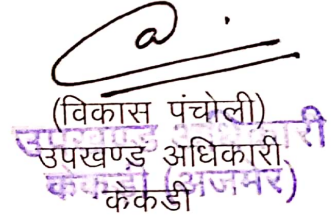 (विकास पंचोली)
उपखण्ड अधिकारी
उपखण्ड अधिकारी
केकडी (अजमेर)
केकडी